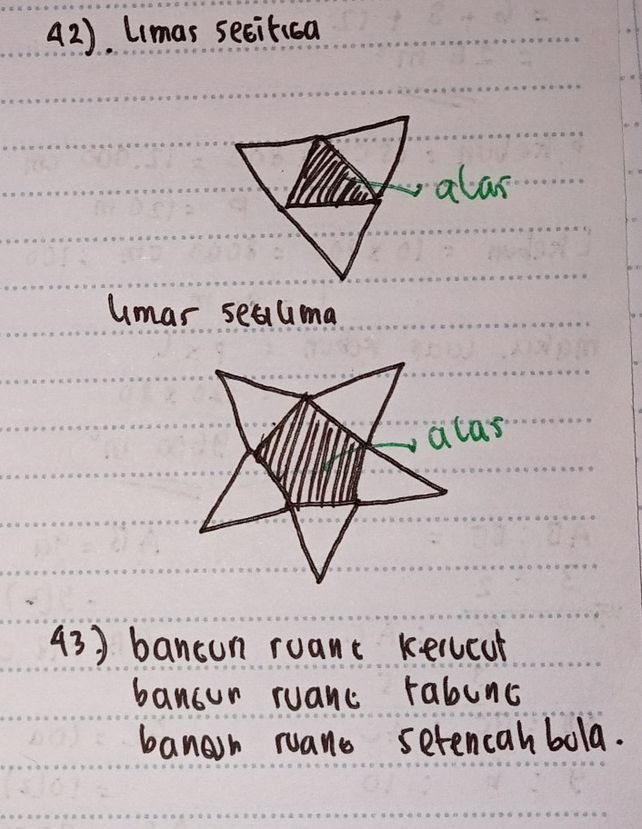 42). Limas segitiga
alas
Limas segilima
alas
43) bangun ruang kerucut
bangun ruang tabung
bangun ruang setengah bola.